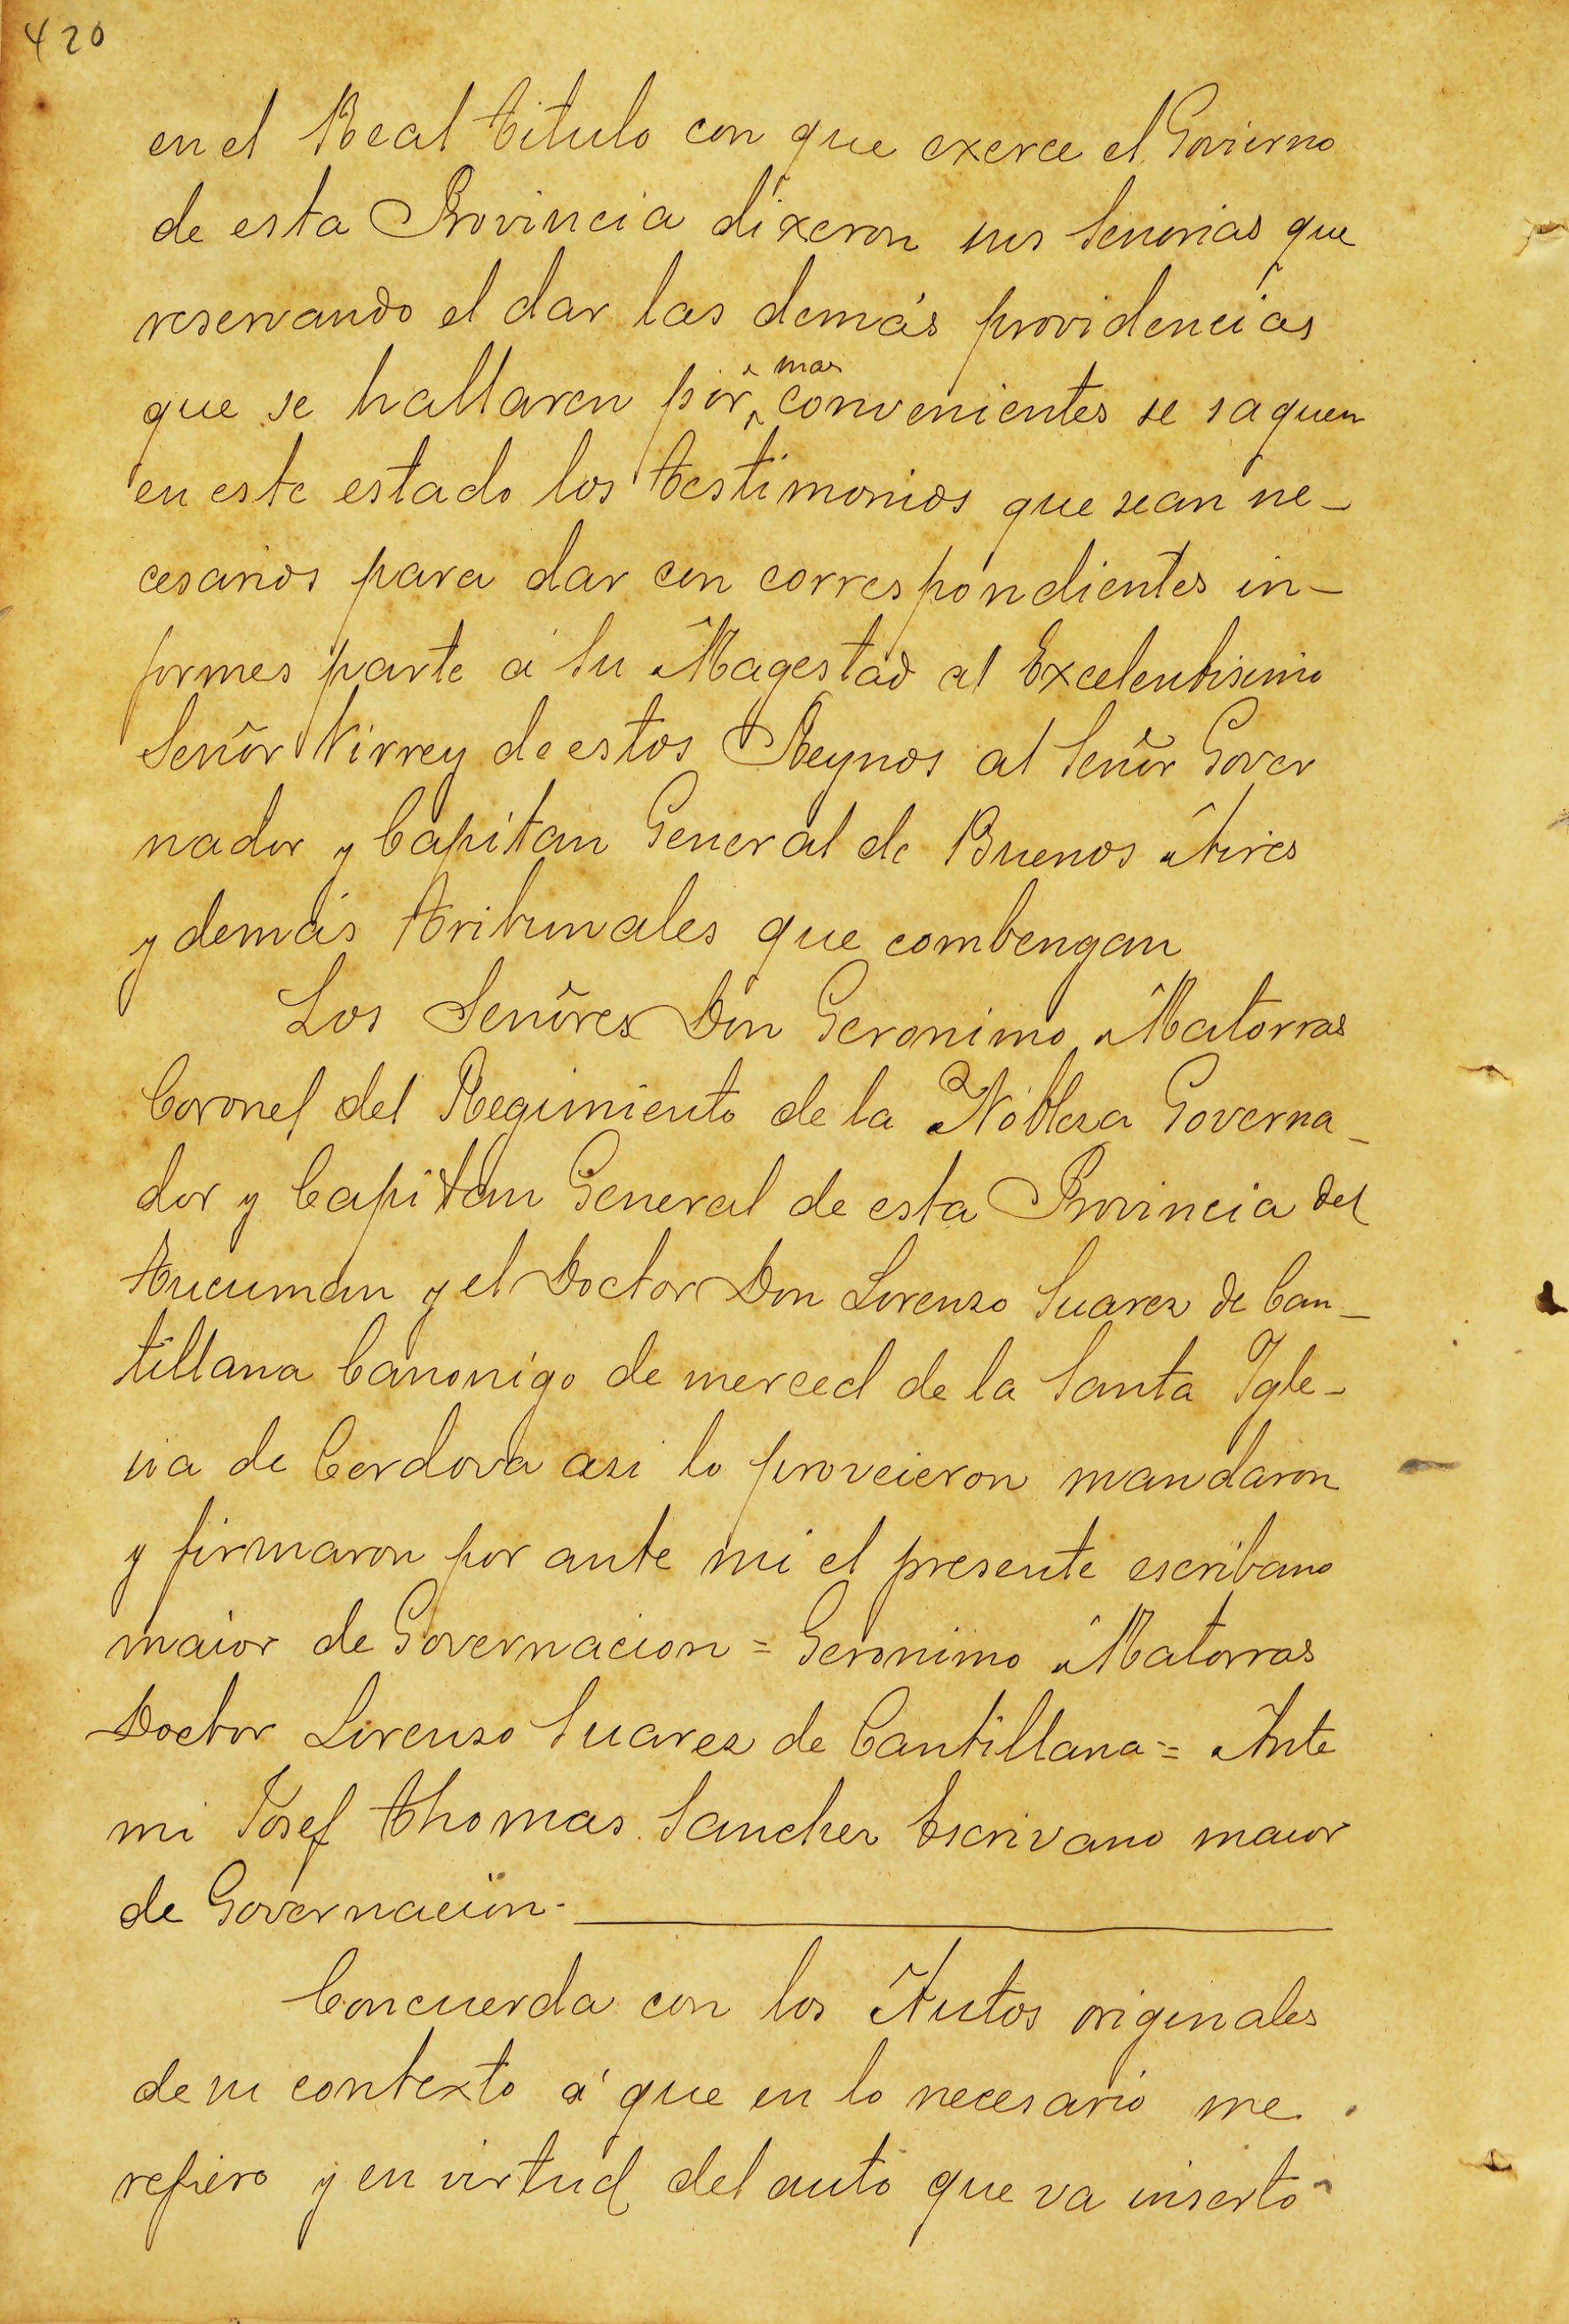 420
en el Real titulo con que exerce el Govierno
de esta Provincia dixeron sus Señorias que
reservando el dar las demás providencias
que se hallaren por mas convenientes se saquen
en este estado los testimonios que sean ne-
cesarios para dar con correspondientes in-
formes parte a su Magestad al Excelentisimo
Señor Virrey de estos Reynos al Señor Gover
nador y Capitan General de Buenos Aires
y demás tribunales que combengan
Los Señores Don Geronimo Matorras
Coronel del Regimiento de la Nobleza Governa-
dor y Capitan General de esta Provincia del
Tucuman y el Doctor Don Lorenzo Suarez de Can-
tillana Canonigo de merced de la Santa Igle-
sia de Cordova asi lo proveieron mandaron
y firmaron por ante mi el presente escribano
maior de Governacion = Geronimo Matorras
Doctor Lorenzo Suarez de Cantillana = Ante
mi Josef Thomas Sanchez Escrivano maior
de Governacion.
Concuerda con los Autos originales
de su contexto á que en lo necesario me
refiero y en virtud del auto que va inserto